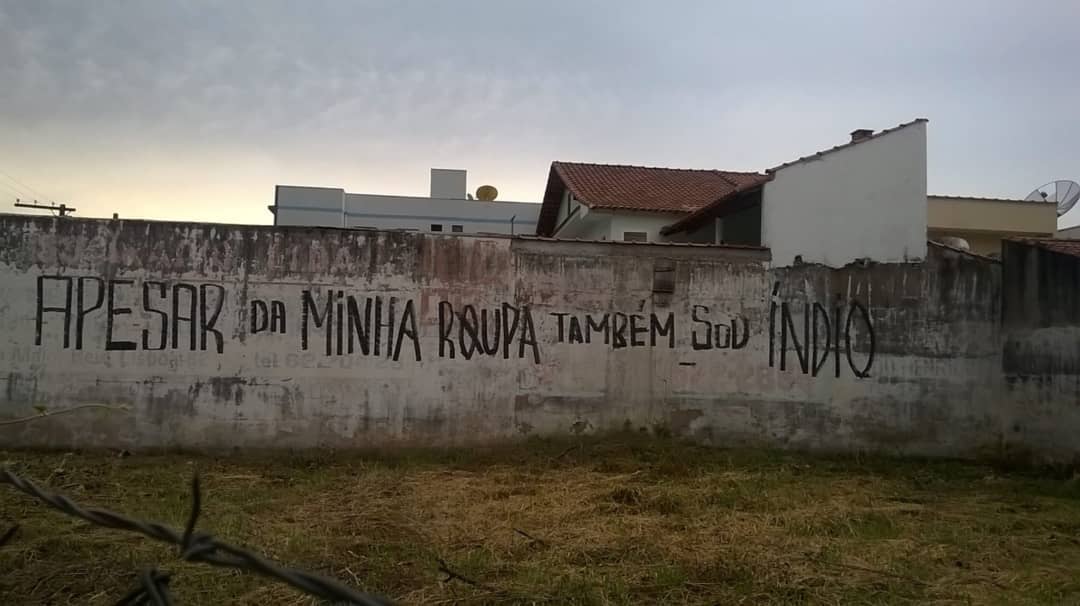 APESAR DA MINHA ROUPA TAMBÉM SOU ÍNDIO